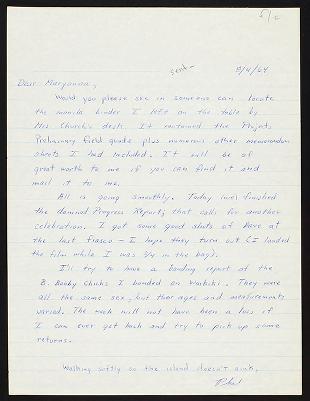 sent
8/4/64
Dear Maryanna,
Would you please see if someone can locate
the manila binder I left on the table by
Mrs. Church's desk. It contained the Projects
Preliminary field guide plus numerous other memorandum
sheets I had included. It will be of
great worth to me if you can find it and
mail it to me.
All is going smoothly. Today we finished
the damned Progress Report; that calls for another
celebration. I got some good shots of Dave at
the last fiasco - I hope they turn out (I loaded
the film while I was 3/4 in the bag).
I'll try to have a banding report of the
B. Booby chicks I banded on Waikiki. They were
all the same sex, but their ages and measurements
varied. The work will not have been a loss if
I can ever get back and try to pick up some
returns.
Walking softly so the island doesn't sink,